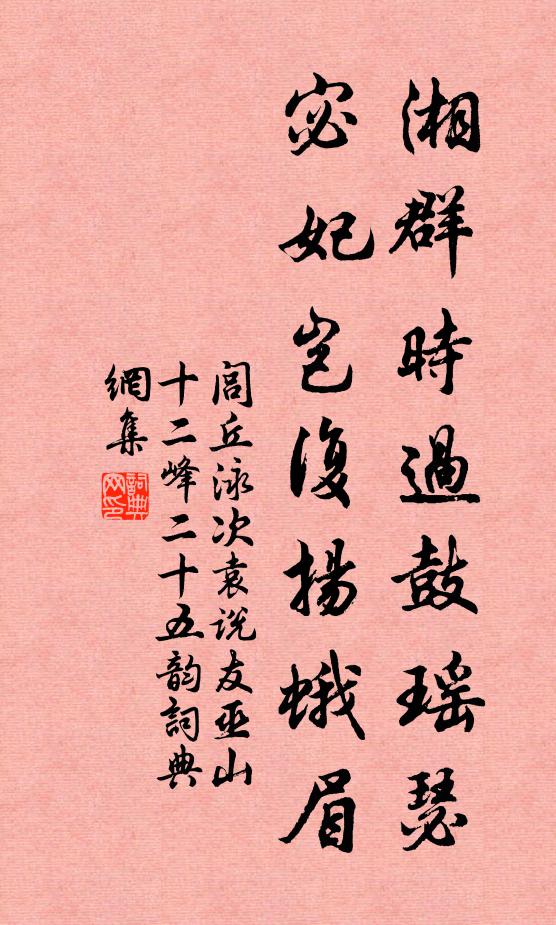 湘群時過鼓瑶瑟
宓妃岂復揚蛾眉
闾丘泳次袁说友巫山
十二峰二十五韵詞典
網集
詞典
网印